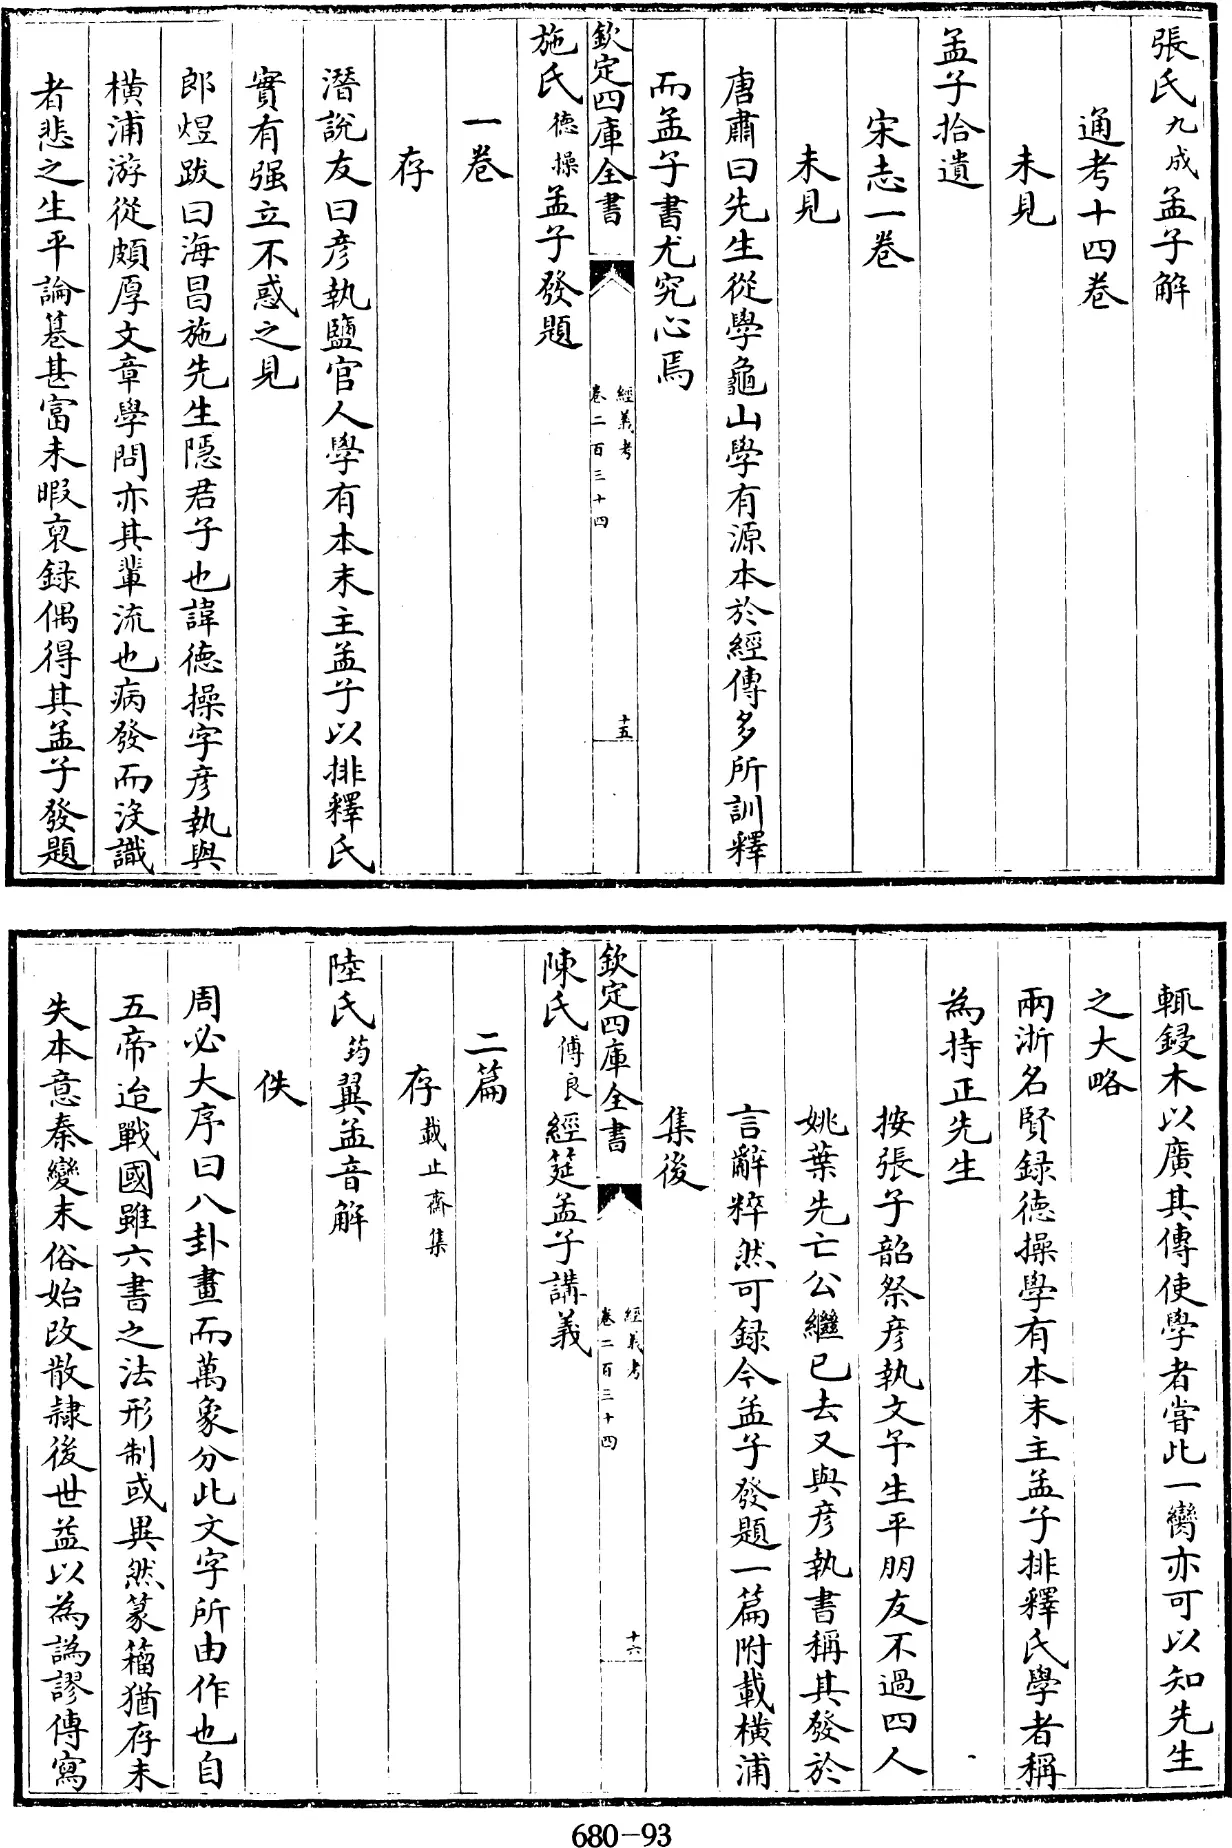 張氏九成孟子解
通考十四卷
未見
孟子拾遺
宋志一卷
未見
唐肅曰先生從學龜山學有源本於經傳多所訓釋
而孟子書尤究心焉
欽定四庫全書
經義考
卷二百三十四
十五
施氏德操孟子發題
一卷
存
潛說友曰彥執鹽官人學有本末主孟子以排釋氏
實有强立不惑之見
郎煜跋曰海昌施先生隱君子也諱德操字彥執與
橫浦游從頗厚文章學問亦其輩流也病發而沒識
者悲之生平論篹甚富未暇裒録偶得其孟子發題
輒鋟木以廣其傳使學者嘗此一臠亦可以知先生
之大略
兩浙名賢録德操學有本末主孟子排釋氏學者稱
為持正先生
按張子韶祭彥執文予生平朋友不過四人
姚葉先亡公繼已去又與彥執書稱其發於
言辭粹然可録今孟子發題一篇附載橫浦
集後
欽定四庫全書
經義考
卷二百三十四
十六
陳氏傅良經筵孟子講義
二篇
存載止齋集
陸氏筠翼孟音解
佚
周必大序曰八卦畫而萬象分此文字所由作也自
五帝迨戰國雖六書之法形制或異然篆籀猶存未
失本意秦變末俗始改散隷後世益以為譌謬傳寫
680-93